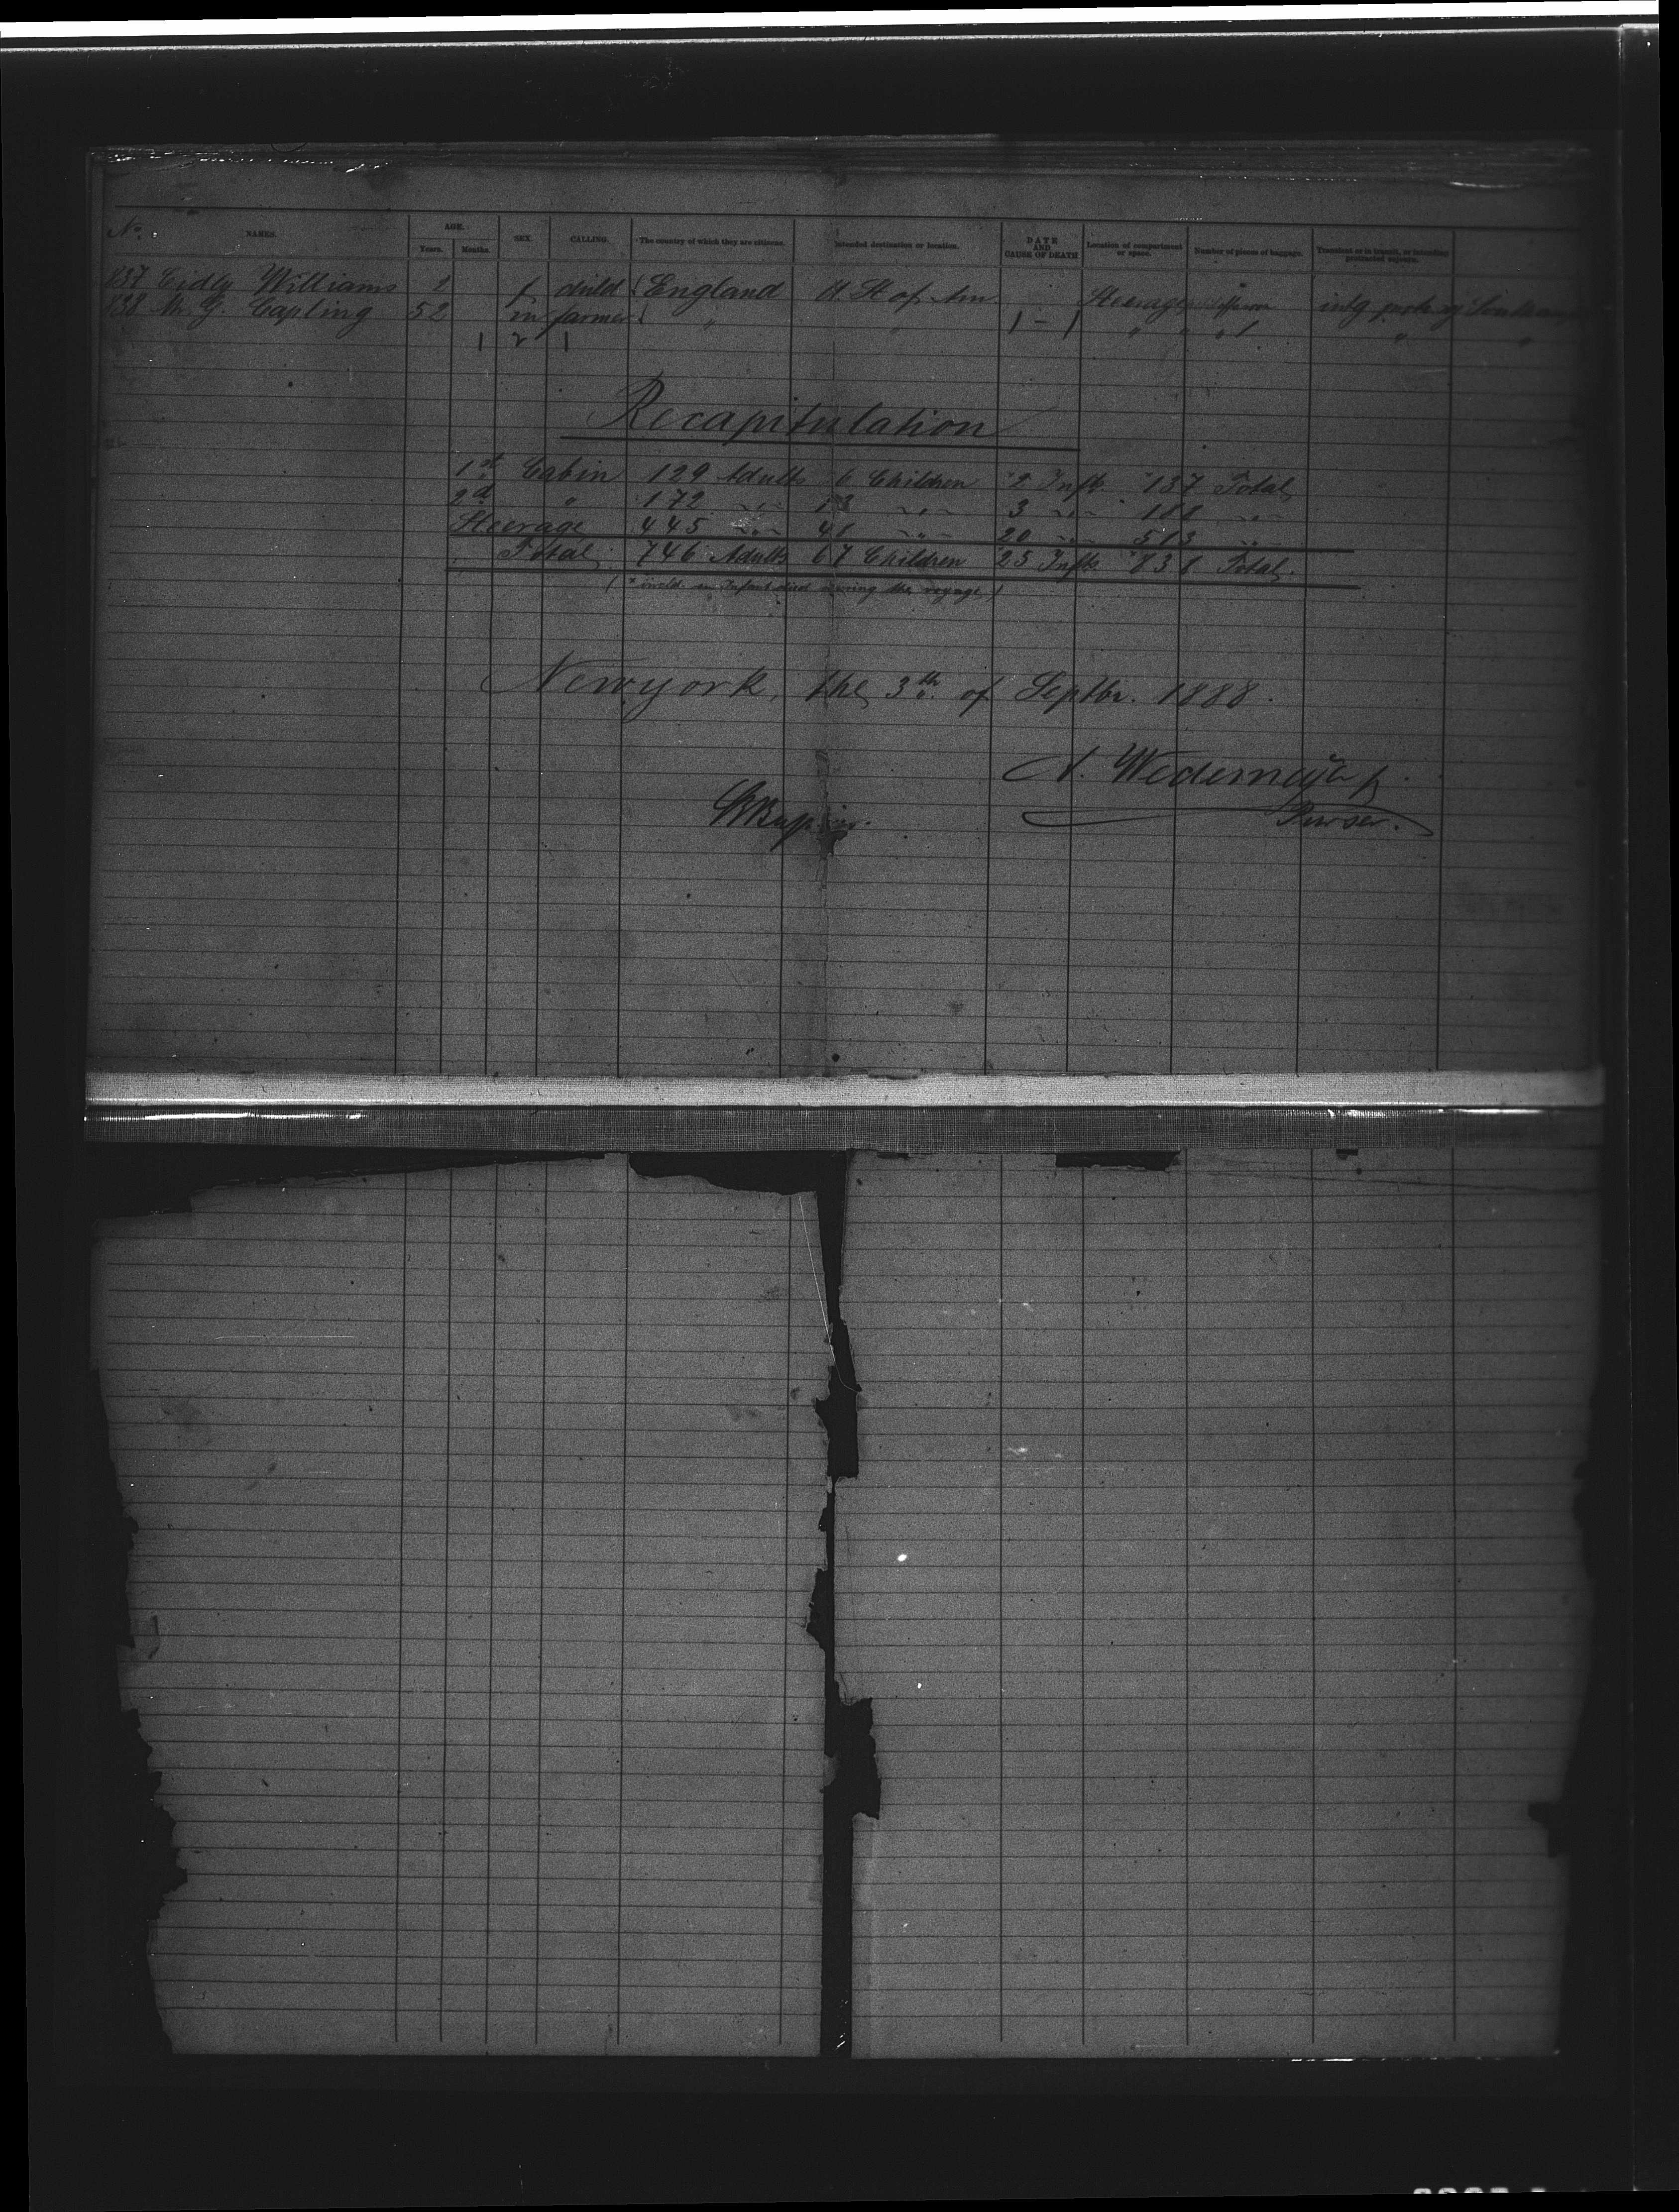 No. NAMES. AGE. Years. Months. SEX. CALLING. The country of which they are citizens. Intended destination or location. DATE AND CAUSE OF DEATH Location of compartment or space. Number of pieces of baggage. Transient or in transit, or intending protracted sojourn.
837 Williams f child England U. St of Am Steerage intg
838 Capling 52 m farmer " " 1 - 1 " " " 1 " "
1 2 1
Recapitulation
1st Cabin 129 Adults 6 Children 2 Infts 137 Total
2d " 172 " 13 " 3 " 188 "
Steerage 445 " 48 " 20 " 513 "
Total 746 Adults 67 Children 25 Infts 838 Total.
Infant died during the voyage)
Newyork, the 3th. of Septbr. 1888.
Purser.